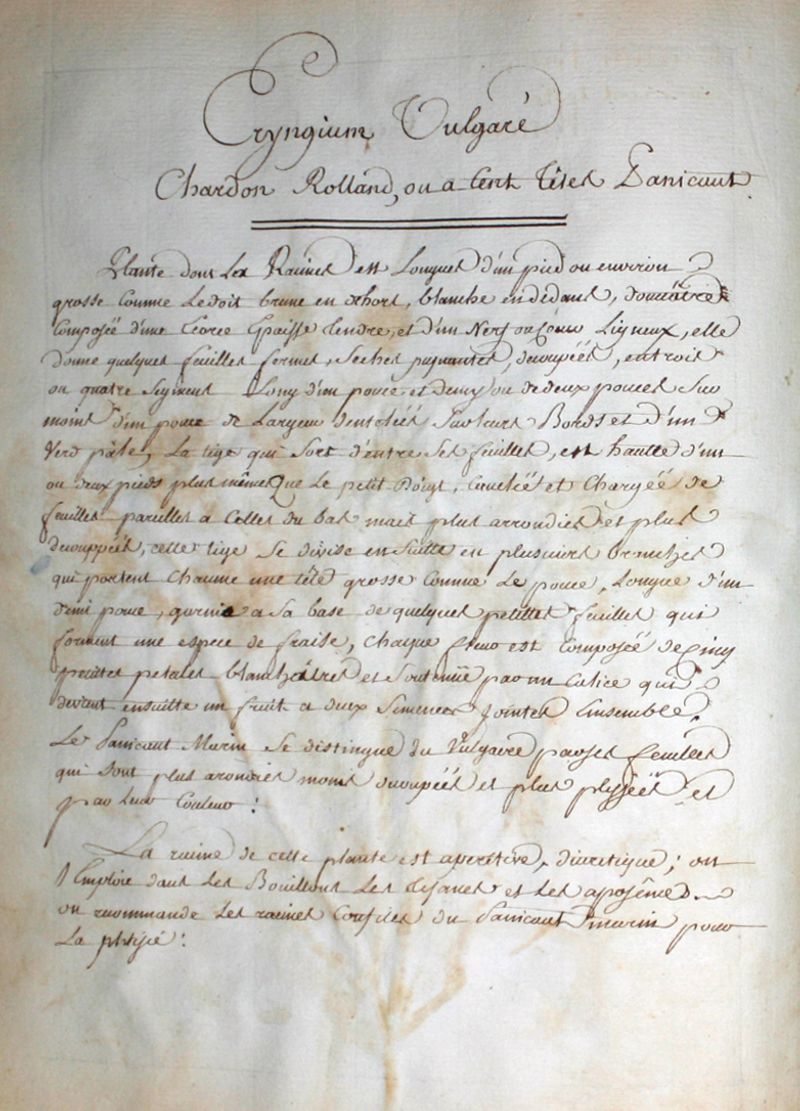 Eryngium Vulgaré
Chardon Rolland, ou a Cent têtes Panicaut
Plante dont Les Racines est Longues d'un pied ou environ
grosse comme Le doit brune en dehors, blanche en dédans, douçâtre
Composée d'une Ecorce Epaisse tendre, et d'un Nerf ou Cœur Ligneux, elle
donne quelques feuilles fermes, seches piquantes, decoupées, en trois
ou quatre Segmens Long d'un pouce et demy ou de deux pouces Sur
moins d'un pouce de Largeur dentelées Sur leurs Bords et d'un
Verd pâle, La tige qui Sort d'entre Ses feuilles, est haulte d'un
ou deux pieds plus même Que Le petit Doigt, et Chargée de
feuilles pareilles a Celles du bas mais plus arrondies et plus
decouppées, cette tige Se divise en Suitte en plusieurs branches
qui portent Chacune une tête grosse Comme Le pouce, Longue d'un
demi pouce, garnie a Sa base de quelques petittes feuilles qui
forment une espece de fraise, Chaque fleur est Composée de Cinq
petittes petales blanchâtres et Soutenüe par un Calice qui
devient ensuitte un fruit a deux Semences Jointes Ensemble.
Le Panicaut Marin Se distingue du Vulgaire par ses feuilles
qui Sont plus arondies moins decoupées et plus plissées et
par Leur Couleur :
La racine de cette plante est aperitive, diuretique ; on
l'Emploie dans Les Bouillons Les tisanes et Les aposêmes.
on recommande Les racines Confites du Panicaut marin pour
La phtisie :